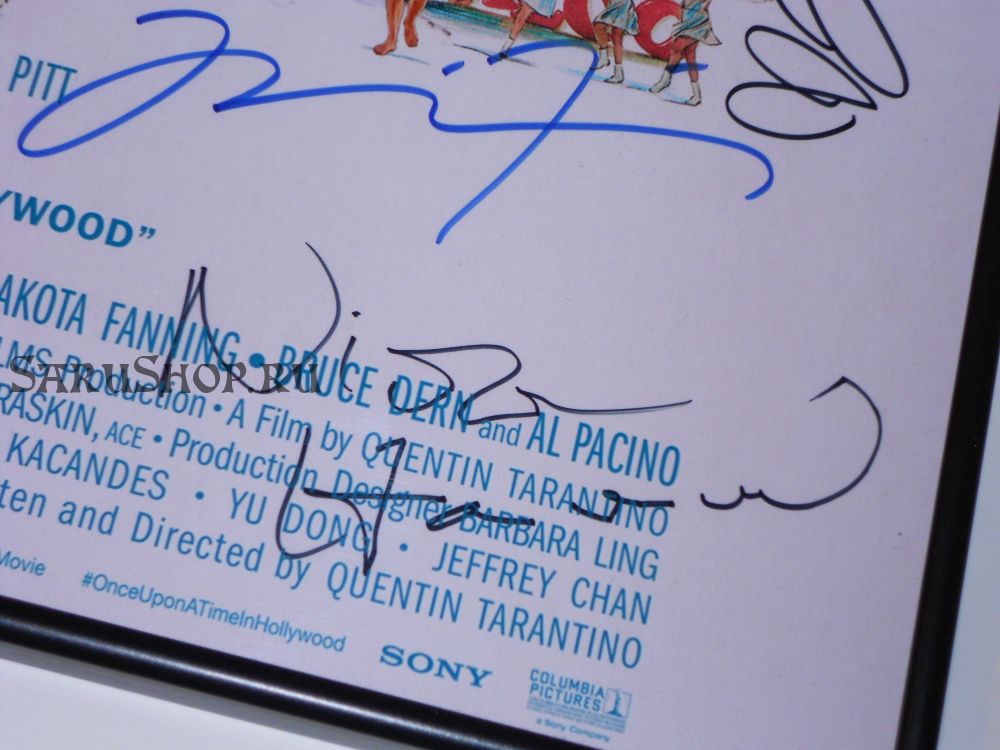 PITT
YWOOD”
AKOTA FANNING • BRUCE DERN and AL PACINO
LMS Production • A Film by QUENTIN TARANTINO
RASKIN, ACE • Production Designer BARBARA LING
KACANDES • YU DONG • JEFFREY CHAN
ten and Directed by QUENTIN TARANTINO
Movie #OnceUponATimeInHollywood
SONY
COLUMBIA
PICTURES
a Sony Company
SARUSHOP.RU